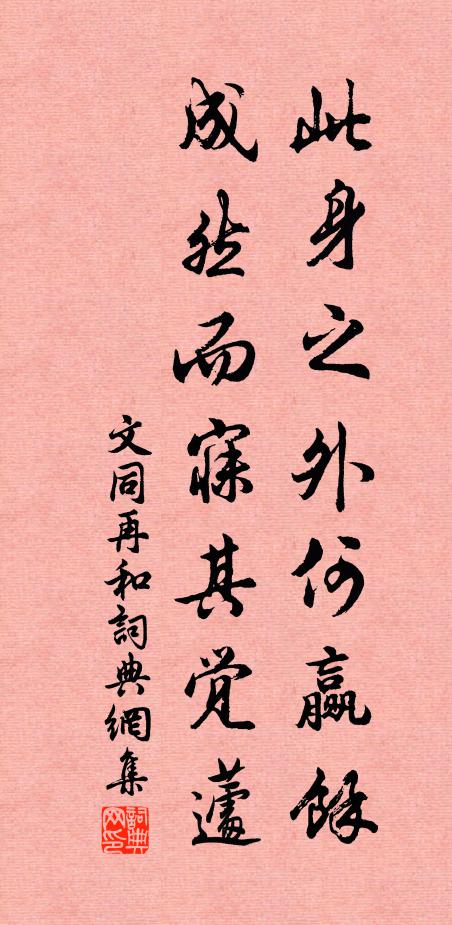 此身之外何赢餘
成然而寐其觉蘧
文同再和詞典網集
詞典网印